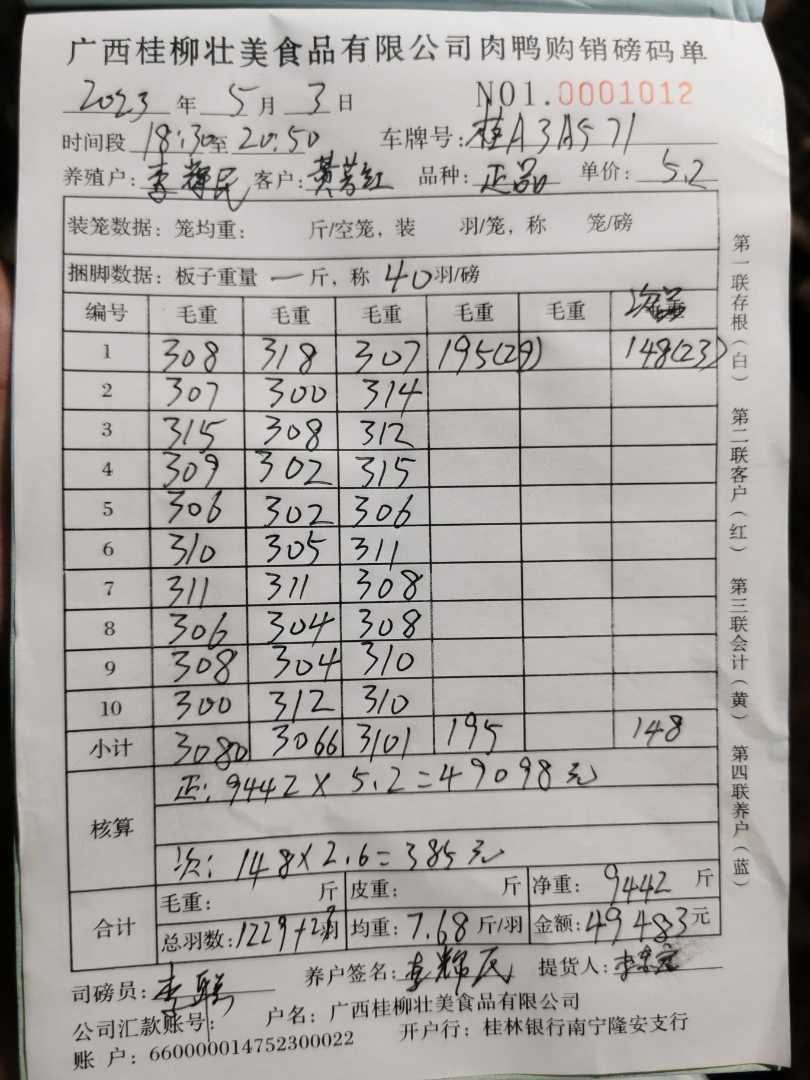 广西桂柳壮美食品有限公司肉鸭购销磅码单
2023 年 5 月 3 日 NO1.0001012
时间段 18:30 至 20:50 车牌号: 桂A3A571
养殖户: 李辉民 客户: 黄芳红 品种: 正品 单价: 5.2
装笼数据: 笼均重: 斤/空笼, 装 羽/笼, 称 笼/磅
捆脚数据: 板子重量 一 斤, 称 40 羽/磅
编号 毛重 毛重 毛重 毛重 毛重 次品
1 308 318 307 195(29) 148(23)
2 307 300 314
3 315 308 312
4 309 302 315
5 306 302 306
6 310 305 311
7 311 311 308
8 306 304 308
9 308 304 310
10 300 312 310
小计 3080 3066 3101 195 148
核算 正: 9442 × 5.2 = 49098 元
次: 148 × 2.6 = 385 元
合计 毛重: 斤 皮重: 斤 净重: 9442 斤
总羽数: 1229+23 羽 均重: 7.68 斤/羽 金额: 49483 元
司磅员: 李 养户签名: 李辉民 提货人: 李
公司汇款账号: 户名: 广西桂柳壮美食品有限公司
账 户: 660000014752300022 开户行: 桂林银行南宁隆安支行
第一联存根(白) 第二联客户(红) 第三联会计(黄) 第四联养户(蓝)